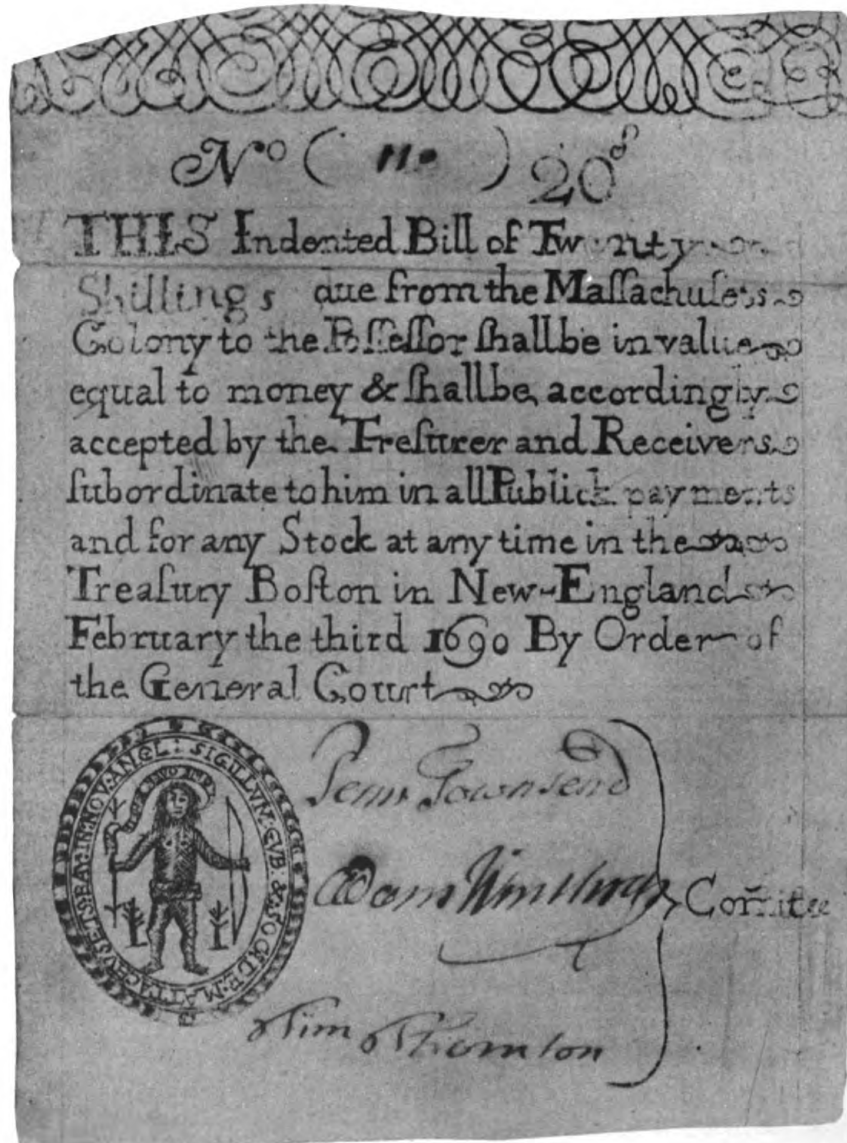 No ( 110 ) 20s
THIS Indented Bill of Twenty
Shillings due from the Maſſachuſets
Colony to the Poſſeſſor ſhallbe in value
equal to money & ſhallbe accordingly
accepted by the Treſurer and Receivers
ſubordinate to him in all Publick payments
and for any Stock at any time in the
Treaſury Boſton in New-England
February the third 1690 By Order of
the General Court
SIGILLVM : GVB : & SOC : DE : MATTACHVSETS : BAY : IN : NOV : ANGL :
Penn Townsend
Adam Winthrop
Tim Thornton
Com̃itee